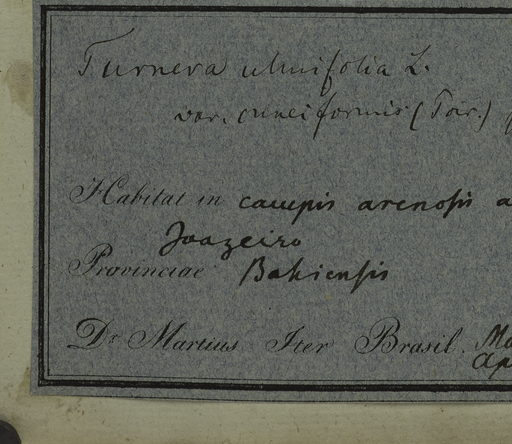 Turnera ulmifolia L.
var. cuneiformis (Poir.)
Habitat in campis arenosis a
Joazeiro
Provinciae Bahiensis
Dr Martius Iter Brasil. Ma
Ap